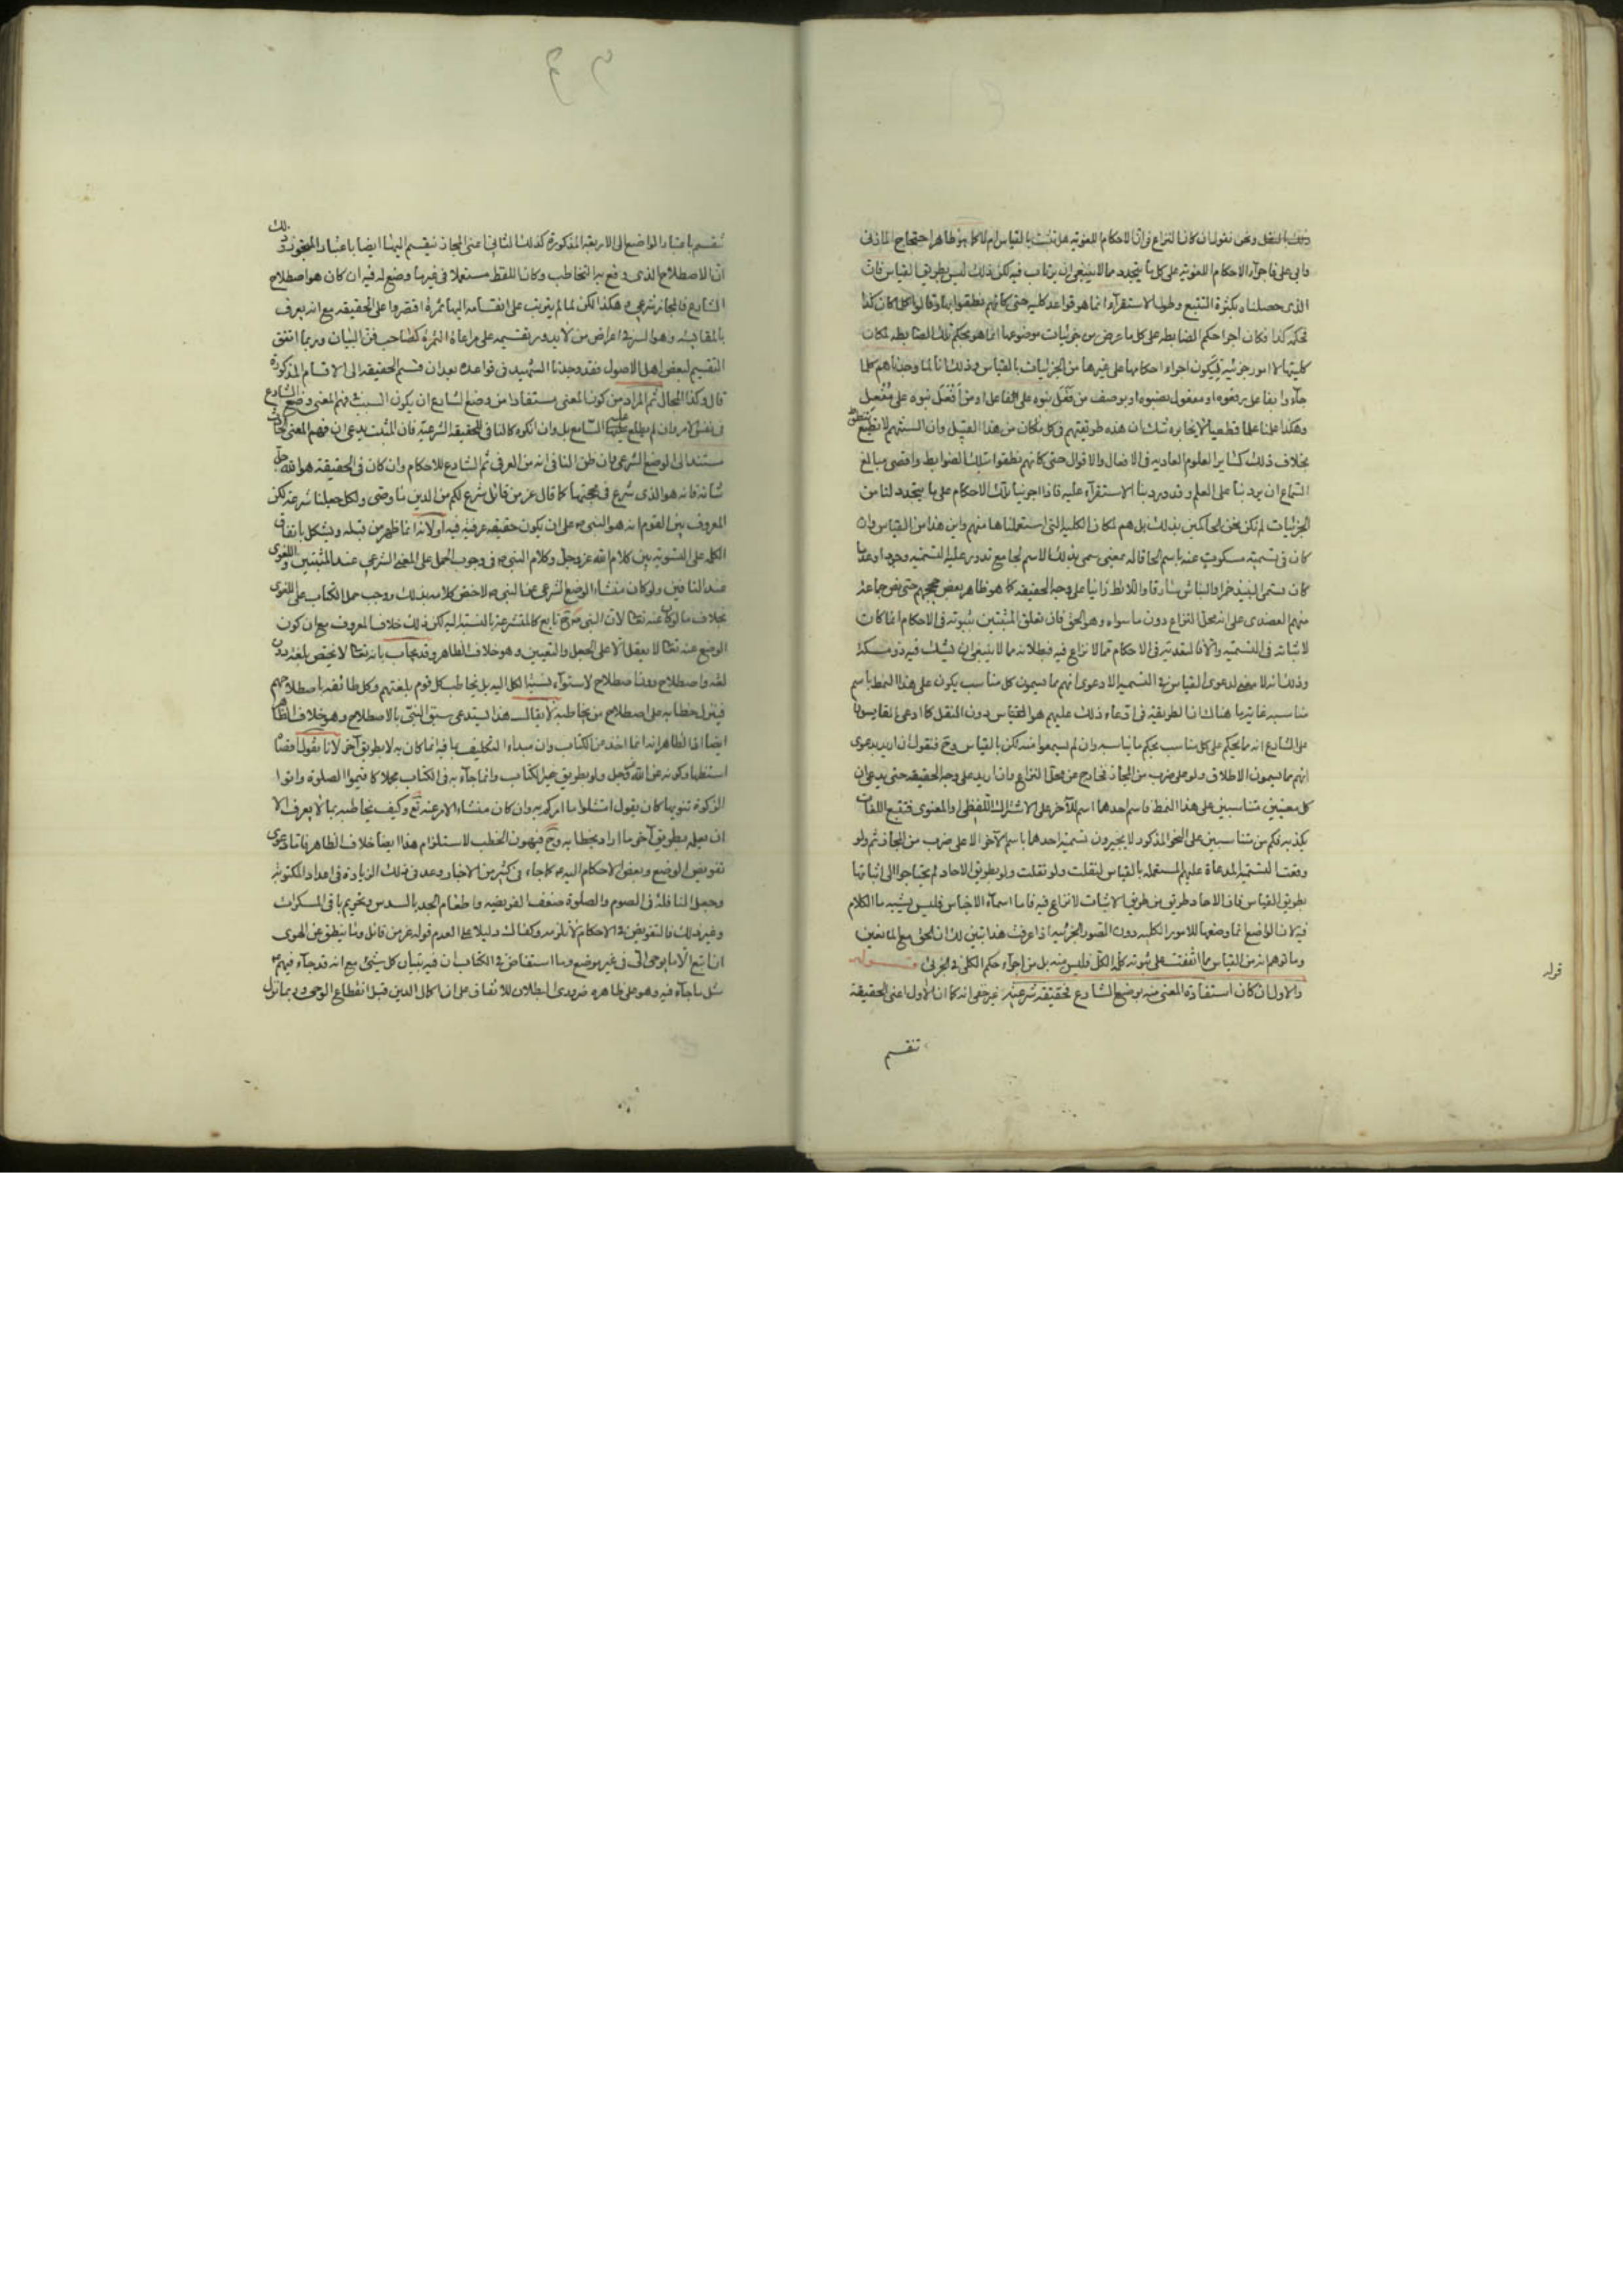 ونحن نقول ان كان النزاع في ان الاحكام اللغوية هل تثبت بالقياس ام لا كما هو ظاهر احتجاج المازني
وابي علي فاجراء الاحكام اللغوية على كل ما يتجدد مما لا ينبغي ان يرتاب فيه لكن ذلك ليس بطريق القياس فان
الذي حصلناه بكثرة التتبع وطول الاستقراء انما هو قواعد كلية حتى كانهم نطقوا بها وقالوا كلما كان كذا
فحكمه كذا فكان اجراء حكم الضابطه على كل ما عرض من جزئيات موضوعها انما هو بحكم تلك الضابطه لمكان
كليتها لا امور جزئية فيكون اجراء احكامها على غيرها من الجزئيات بالقياس وذلك انا لما وجدناهم كلما
جاءوا بفاعل رفعوه او مفعول نصبوه او بوصف من فَعَل بنوه على الفاعل او من اَفعَل بنوه على مُفعِل
وهكذا علمنا علما قطعيا لا يخامره شك ان هذه طريقتهم في كل ما كان من هذا القبيل وان السنتهم لا تنطق
بخلاف ذلك كساير العلوم العاديه في الافعال والاقوال حتى كانهم نطقوا بتلك الضوابط واقصى مبالغ
السماع ان يرد بنا على العلم وقد ورد بنا الاستقراء عليه فاذا اجرينا تلك الاحكام على ما يتجدد لنا من
الجزئيات لم نكن نحن الحاكمين بذلك بل هم لمكان الكلية التي استعلمناها منهم واين هذا من القياس وان
كان في تسمية مسكوت عنه باسم الحاقا له بمعنى سمي بذلك الاسم لجامع تدور عليه التسميه وجودا وعدما
كان تسمى النبيذ خمرا والنباش سارقا واللائط زانيا على وجه الحقيقه كما هو ظاهر بعض حججهم حتى نص جماعة
منهم العضدي على انه محل النزاع دون ما سواه وهو الحق فان تعلق المثبتين بثبوته في الاحكام انما كان
لاثباته في التسمية والا فالتعدية في الاحكام مما لا نزاع فيه فبطلانه مما لا ينبغي ان يشك فيه ذو مسكة
وذلك انه لا معنى لدعوى القياس في التسمية الا دعوى انهم مما يسمون كل مناسب يكون على هذا النمط باسم
مناسبه غاية ما هناك ان الطريقة في ادعاء ذلك عليهم هو القياس دون النقل كما ادعى القايسون
على الشارع انه مما يحكم على كل مناسب بحكم مناسبه وان لم يسمعوا منه لكن بالقياس وح فنقول ان اريد بدعوى
انهم مما يسمون الاطلاق ولو على ضرب من المجاز فخارج عن محل النزاع وان اريد على وجه الحقيقه حتى يدعى ان
كل معنيين متناسبين على هذا النمط فاسم احدهما اسم للآخر على الاشتراك اللفظي او المعنوي فتتبع اللغات
يكذبه فكم من متناسبين على النحو المذكور لا يجيزون تسمية احدهما باسم الآخر الا على ضرب من المجاز ثم ولو
وقعت التسمية المدعاة عليهم المستعمله بالقياس لنقلت ولو نقلت ولو بطريق الاحاد لم يحتاجوا الى اثباتها
بطريق القياس فان الاحاد طريق من طريق الاثبات لا نزاع فيه فاما اسماء الاجناس فليس يشبه ما الكلام
فيه لان الواضع انما وضعها للامور الكليه دون الصور الجزئيه اذا عرفت هذا تبين لك ان الحق مع المانعين
وما توهم انه من القياس مما اتفقت على ثبوته كلمة الكل فليس منه بل من اجراء حكم الكلي في الجزئي قوله
والاول ان كان استفادة المعنى منه بوضع الشارع فحقيقة شرعية غير خفي انه كما ان الاول اعني الحقيقة
تنقسم
قوله
تنقسم باعتبار الواضع الى الاربعة المذكورة كذلك الثاني اعني المجاز ينقسم اليها ايضا باعتبار المتجوز وذلك
ان الاصطلاح الذي وقع به التخاطب وكان اللفظ مستعملا في غير ما وضع له فيه ان كان هو اصطلاح
الشارع فالمجاز شرعي وهكذا لكن لما لم يترتب على انقسامه اليها ثمرة اقتصروا على الحقيقه مع انه يعرف
بالمقايسه وهو السر في اعراض من لا يدور تقسيمه على مراعاة الثمرة كصاحب فن البيان وربما اتفق
التقسيم لبعض اهل الاصول فقد وجدنا التمهيد في قواعده بعد ان قسم الحقيقه الى الاقسام المذكورة
قال وكذا المجال ثم المراد من كون المعنى مستفادا من وضع الشارع ان يكون السبب في فهم المعنى وضع الشارع
في نفس الامر وان لم يطلع عليه السامع بل وان انكره كالنافي للحقيقة الشرعية فان المثبت يدعي ان فهم المعنى
مستند الى الوضع الشرعي وان ظن النافي انه من العرف ثم الشارع للاحكام وان كان في الحقيقه هو الله جل
شانه فانه هو الذي شرع كما قال عز من قائل شرع لكم من الدين ما وصى ولكل جعلنا شرعة لكن
المعروف بين القوم انه هو النبي ص على ان يكون حقيقه عرفية فيه او لانه انما ظهر من قبله ويشكل باتفاق
الكلمة على التسويه بين كلام الله عز وجل وكلام النبي ص في وجوب الحمل على المعنى الشرعي عند المثبتين واللغوي
عند النافين ولو كان منشاء الوضع الشرعي هنا النبي ص لاختص كلامه بذلك ووجب حمل الكتاب على اللغوي
بخلاف ما لو كان عنه تعالى لان النبي ح تابع كالمتشرعة بالنسبة اليه لكن ذلك خلاف المعروف مع ان كون
الوضع عنه تعالى لا يعقل الا على الجعل والتعيين وهو خلاف الظاهر وقد يجاب بانه تعالى لا يختص بلغة دون
لغة واصطلاح دون اصطلاح لاستواء نسبة الكل اليه بل يخاطب كل قوم بلغتهم وكل طائفة باصطلاحهم
فينزل خطابه على اصطلاح من يخاطبه لا يقال هذا يستدعي سبق النبي بالاصطلاح وهو خلاف الظاهر
ايضا اذ الظاهر انه انما اخذ من الكتاب وان مبداء التكليف بما فيه انما كان به لا بطريق آخر لانا نقول اقصى ما
استظهار كونه عن الله عز وجل ولو بطريق غير الكتاب وانما جاء به في الكتاب مجملا كاقيموا الصلوة واتوا
الزكوة تنويها كان يقول امتثلوا ما امركم به وان كان منشاء الامر عنه تع وكيف يخاطبه بما لا يعرف الا
ان يعلم بطريق آخر ما اراد بخطابه وح فيهون الخطب لاستلزام هذا ايضا خلاف الظاهر فاما دعوى
تفويض الوضع وبعض الاحكام اليه ص كما جاء في كثير من الاخبار وعد في ذلك الزيادة في اعداد المكتوبة
وجعل النافلة في الصوم والصلوة ضعف الفريضه واطعام الجد بالسدس وتحريم باقي المسكرات
وغير ذلك فالتفويض في الاحكام لا نلتزمه وكفاك دليلا على العدم قوله عز من قائل وما ينطق عن الهوى
ان اتبع الا ما يوحى الي في غير موضع وما استفاض في الكتاب ان فيه تبيان كل شيئ مع انه قد جاء فيهم ع
مثل ما جاء فيه وهو على ظاهره ضروري البطلان للاتفاق على ان اكمال الدين قبل انقطاع الوحي وربما نزل